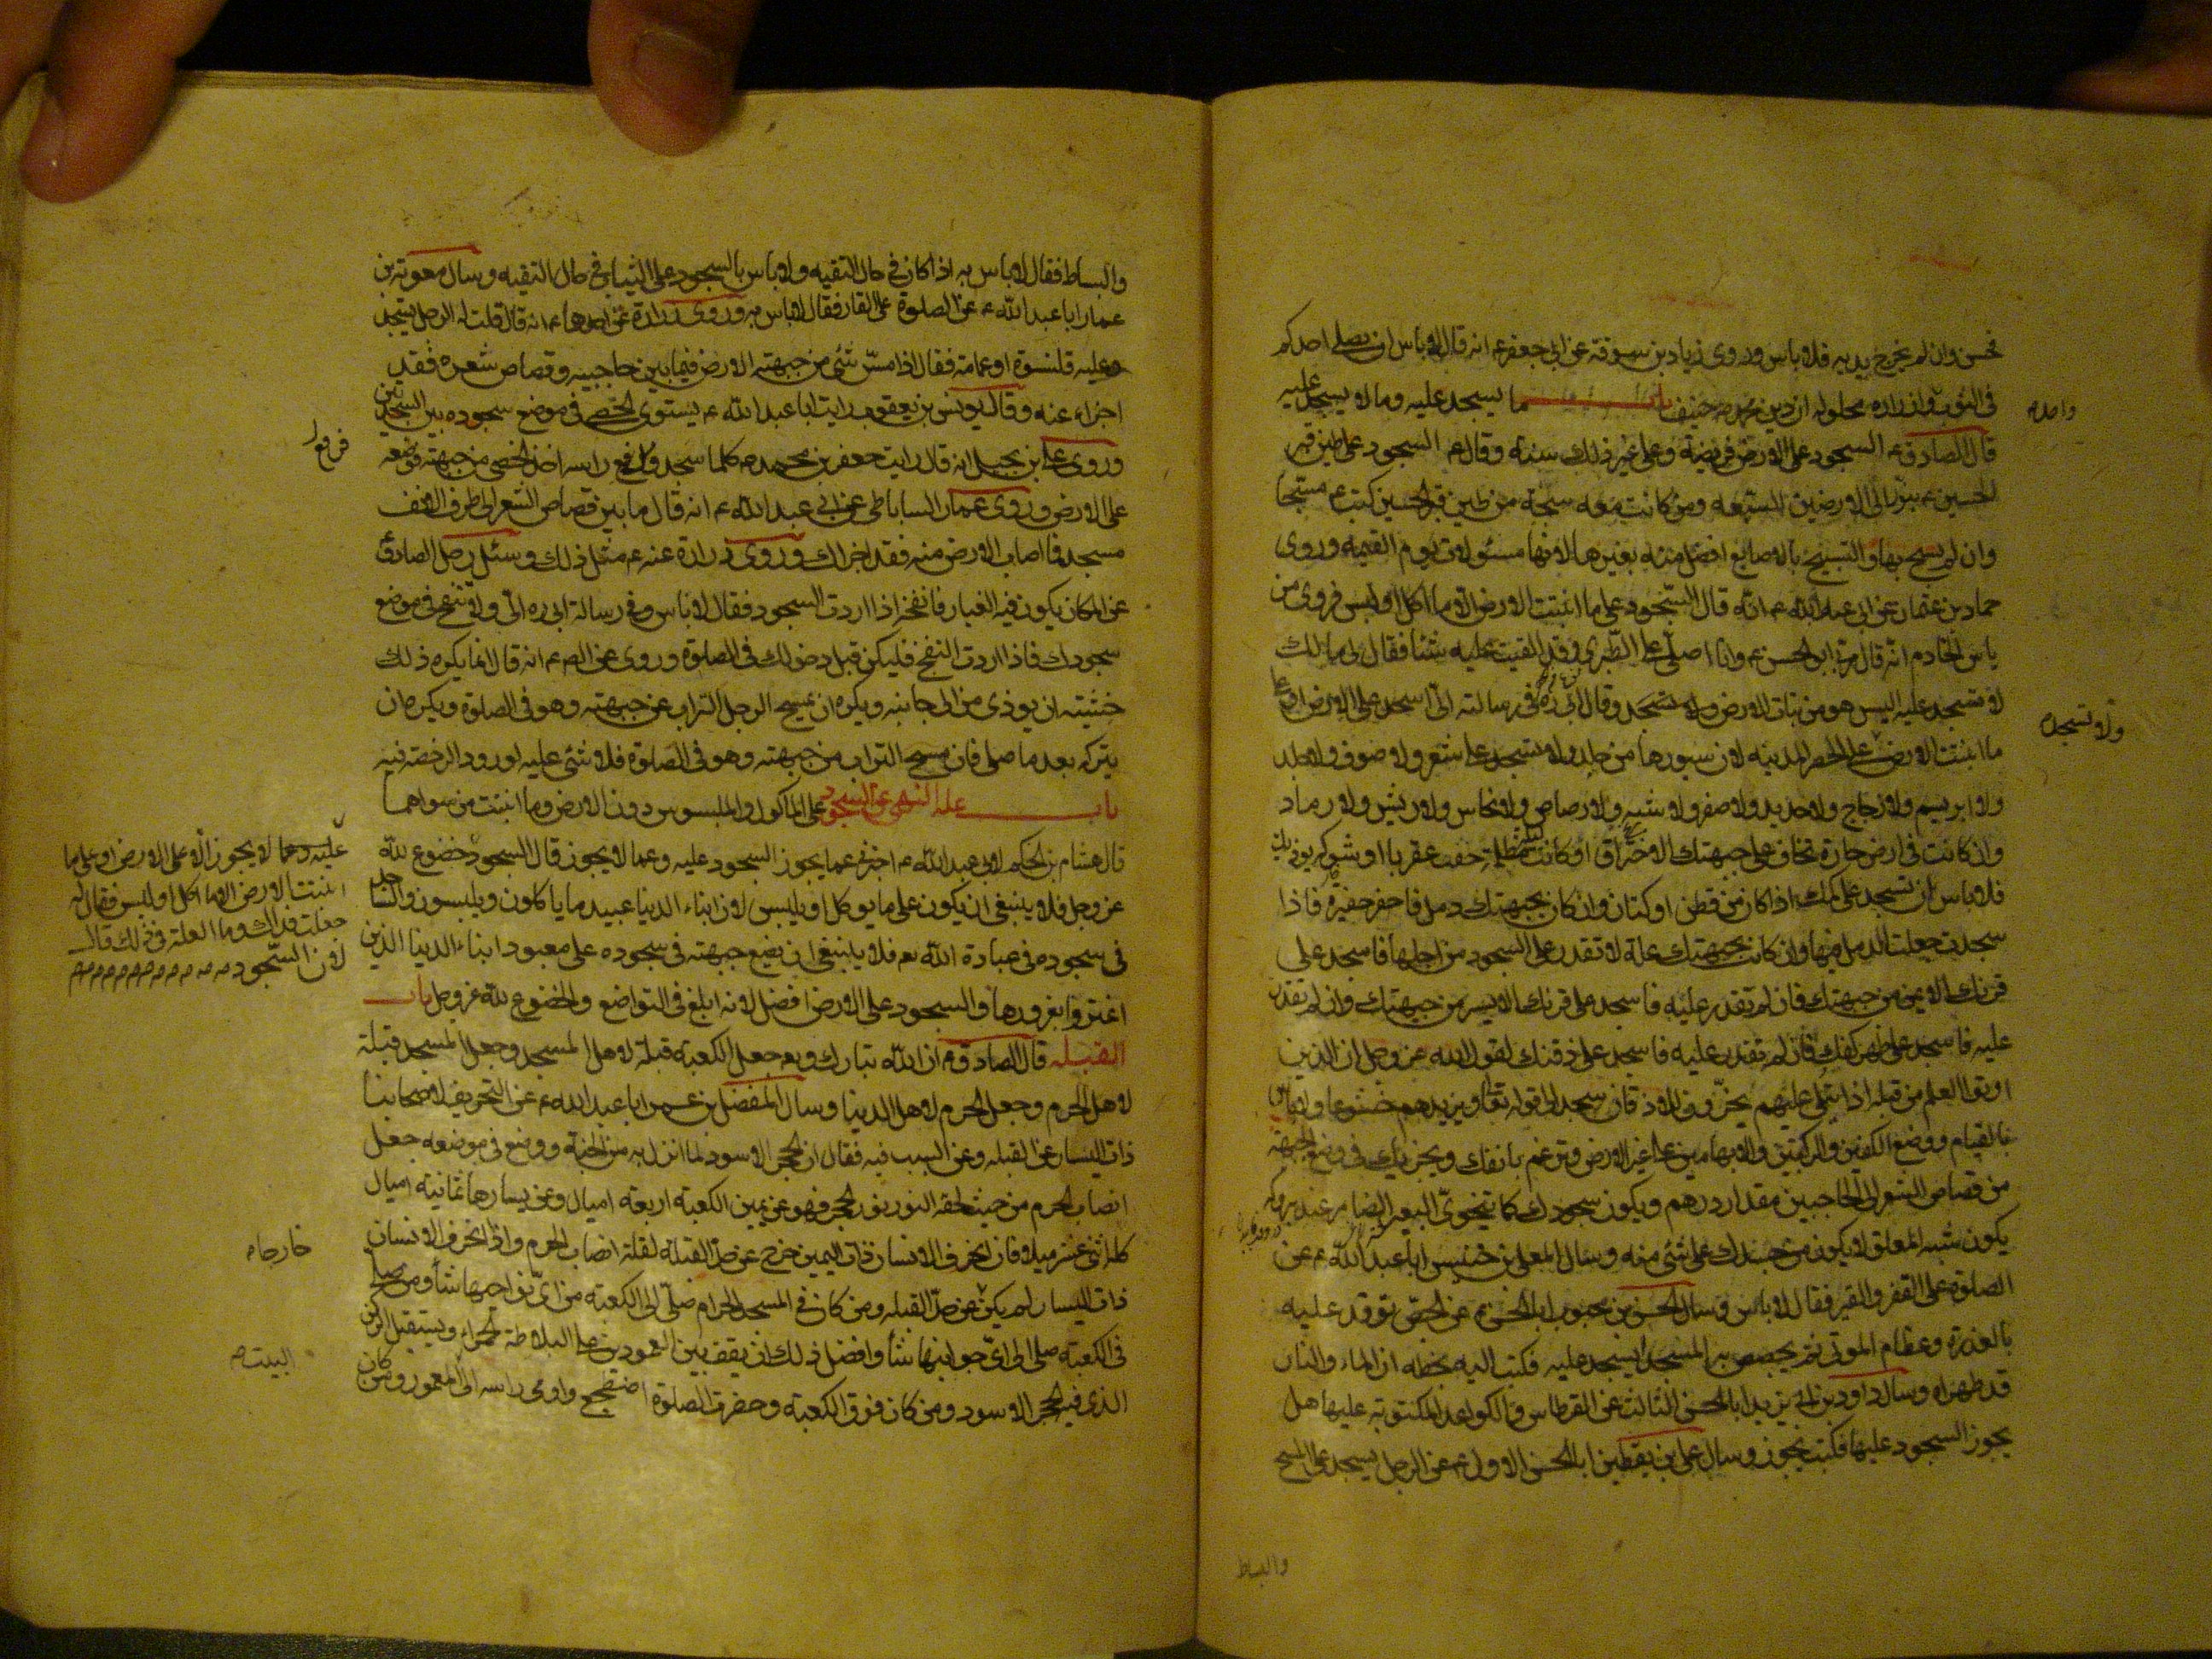 فحسن وان لم يخرج يديه فلا باس وروى زياد بن سوقة عن ابى جعفر ع انه قال لا باس ان يصلى احدكم
فى الثوب وازراره محلولة ان دين محمد ص حنيف باب ما يسجد عليه وما لا يسجد عليه
واحد
قال الصادق ع السجود على الارض فريضة وعلى غير ذلك سنة وقال ع السجود على طين قبر
الحسين ع ينور الى الارضين السبعة ومن كانت معه سبحة من طين قبر الحسين كتب ع مسبحا
وان لم يسبح بها والتسبيح بالاصابع افضل منه بغيرها لانها مسئولات يوم القيمه وروى
حماد بن عثمان عن ابى عبد الله ع انه قال السجود على ما انبتت الارض الا ما اكل او لبس وروى عن
ياسر الخادم انه قال مر بى ابو الحسن ع وانا اصلى على الطبرى وقد القيت عليه شيئا فقال لى مالك
لا تسجد عليه اليس هو من نبات الارض وقال ابى ره فى رسالته الى اسجد على الارض او على
ولا تسجد
ما انبتت الارض ولا تسجد على الحصر المدنيه لان سيورها من جلد ولا تسجد على شعر ولا صوف ولا جلد
ولا ابريسم ولا زجاج ولا حديد ولا صفر ولا شبه ولا رصاص ولا نحاس ولا ريش ولا رماد
وان كانت فى ارض حارة تخاف على جبهتك الاحتراق او كانت ليلة مظلمة خفت عقربا او شوكه يوذيك
فلا باس ان تسجد على كمك اذا كان من قطن او كتان وان كان بجبهتك دمل فاحفر حفيرة فاذا
سجدت جعلت الدمل فيها وان كانت بجبهتك علة لا تقدر على السجود من اجلها فاسجد على
قرنك الايمن من جبهتك فان لم تقدر عليه فاسجد على قرنك الايسر من جبهتك وان لم تقدر
عليه فاسجد على ظهر كفك فان لم تقدر عليه فاسجد على ذقنك لقول الله عز وجل ان الذين
اوتوا العلم من قبله اذا يتلى عليهم يخرون للاذقان سجدا الى قوله تعالى ويزيدهم خشوعا ولا باس
بالقيام ووضع الكفين والركبتين والابهامين على غير الارض وترغم بانفك ويجزيك فى وضع الجبهة
من قصاص الشعر الى الحاجبين مقدار درهم ويكون سجودك كما يتخوى البعير الضامر عند بروكه
يكون شبه المعلق لا يكون من جسدك على شئ منه وسال المعلى بن خنيس ابا عبد الله ع عن
الصلوة على القفر والقير فقال لا باس وسال الحسن بن محبوب ابا الحسن ع عن الجص توقد عليه
بالعذرة وعظام الموتى ثم يجصص به المسجد ايسجد عليه فكتب اليه بخطه ان الماء والنار
قد طهراه وسال داود بن ابى يزيد ابا الحسن الثالث عن القراطيس والكواغد المكتوبة عليها هل
يجوز السجود عليها فكتب يجوز وسال على بن يقطين ابا الحسن الاول ع عن الرجل يسجد على المسح
والبساط
والبساط فقال لا باس به اذا كان فى حال التقيه ولا باس بالسجود على الثياب فى حال التقيه وسال معوية بن
عمار ابا عبد الله ع عن الصلوة على القار فقال لا باس به وروى زرارة عن احدهما ع انه قال قلت له الرجل يسجد
وعليه قلنسوة او عمامة فقال اذا مس شئ من جبهته الارض فيما بين حاجبيه وقصاص شعره فقد
اجزاء عنه وقال يونس بن يعقوب رايت ابا عبد الله ع يستوى الحصى فى موضع سجوده بين السجدتين
وروى على بن بجيل انه قال رايت جعفر بن محمد ع كلما سجد فرفع راسه اخذ الحصى من جبهته فوضعه
فرفع
على الارض وروى عمار الساباطى عن ابى عبد الله ع انه قال ما بين قصاص الشعر الى طرف الانف
مسجد فما اصاب الارض منه فقد اجزاك وروى زرارة عنه ع مثل ذلك وسئل رجل الصادق
عن المكان يكون فيه الغبار فانفخه اذا اردت السجود فقال لا باس وفى رسالة ابى ره الى ولا تنفخ فى موضع
سجودك فاذا اردت النفخ فليكن قبل دخولك فى الصلوة وروى عن الص ع انه قال انما يكره ذلك
خشية ان يوذى من الى جانبه ويكره ان يمسح الرجل التراب عن جبهته وهو فى الصلوة ويكره ان
يتركه بعد ما صلى فان مسح التراب من جبهته وهو فى الصلوة فلا شئ عليه لورود الرخصة فيه
باب علة النهى عن السجود على الماكول والملبوس دون الارض وما انبتت من سواهما
قال هشام بن الحكم لابى عبد الله ع اخبرنى عما يجوز السجود عليه وعما لا يجوز قال السجود خضوع لله
عليه وعما لا يجوز الا على الارض او على ما
انبتت الارض الا ما اكل او لبس فقال له
جعلت فداك وما العلة فى ذلك قال
لان السجود
عز وجل فلا ينبغى ان يكون على ما يوكل او يلبس لان ابناء الدنيا عبيد ما ياكلون ويلبسون والساجد
فى سجوده فى عبادة الله تع فلا ينبغى ان يضع جبهته فى سجوده على معبود ابناء الدنيا الذين
اغتروا بغرورها والسجود على الارض افضل لانه ابلغ فى التواضع والخضوع لله عز وجل باب
القبله قال الصادق ع ان الله تبارك وتع جعل الكعبة قبلة لاهل المسجد وجعل المسجد قبلة
لاهل الحرم وجعل الحرم لاهل الدنيا وسال المفضل بن عمر ابا عبد الله ع عن التحريف لاصحابنا
ذات اليسار عن القبله وعن السبب فيه فقال ان الحجر الاسود لما انزل به من الجنة ووضع فى موضعه جعل
انصاب الحرم من حيث لحقه النور نور الحجر فهو عن يمين الكعبة اربعة اميال وعن يسارها ثمانية اميال
كله اثنى عشر ميلا فان انحرف الانسان ذات اليمين خرج عن حد القبلة لقلة انصاب الحرم واذا انحرف الانسان
خارجا
ذات اليسار لم يكن عن حد القبله ومن كان فى المسجد الحرام صلى الى الكعبة من اى جوانبها شاء ومن صلى
فى الكعبة صلى الى اى جوانبها شاء وافضل ذلك ان يقف بين العمودين على البلاطة الحمراء ويستقبل الركن
الذى فيه الحجر الاسود ومن كان فوق الكعبة وحضرت الصلوة اضطجع واومى راسه الى المعمور ومن كان
البيت